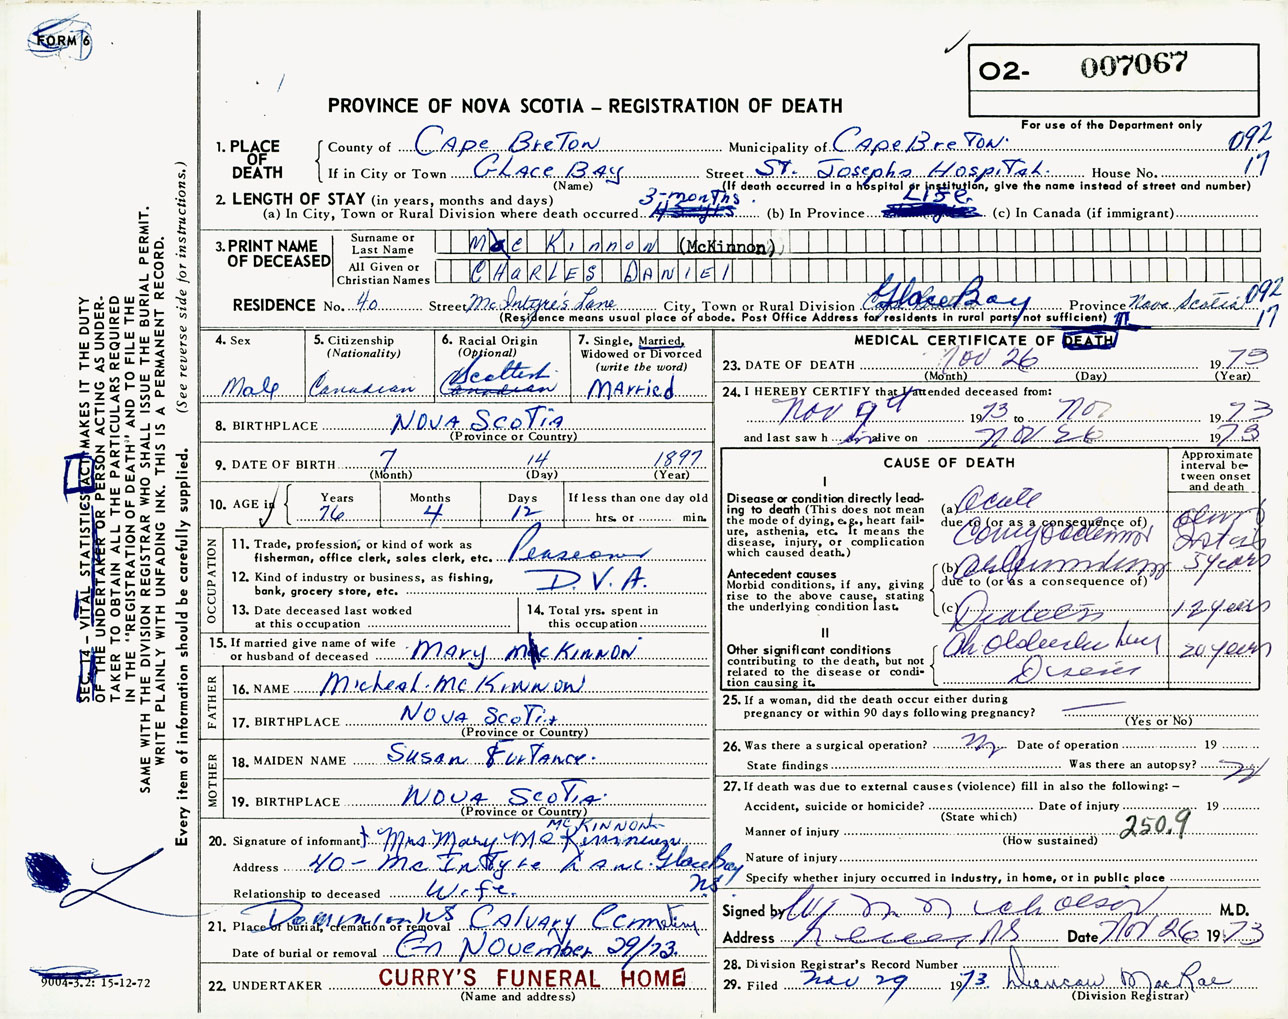 FORM 6
O2- 007067
PROVINCE OF NOVA SCOTIA – REGISTRATION OF DEATH
For use of the Department only
1. PLACE OF DEATH
County of Cape Breton Municipality of Cape Breton. 092
If in City or Town GLace BAy Street St. Josephs Hospital. House No. 17
(Name) (If death occurred in a hospital or institution, give the name instead of street and number)
2. LENGTH OF STAY (in years, months and days) 3-months Life.
(a) In City, Town or Rural Division where death occurred (b) In Province (c) In Canada (if immigrant)
3. PRINT NAME OF DECEASED
Surname or Last Name Mac Kinnon (McKinnon)
All Given or Christian Names CHARLES DANIEl
RESIDENCE No. 40 Street McIntyre's Lane City, Town or Rural Division Glace Bay Province Nova Scotia 092
(Residence means usual place of abode. Post Office Address for residents in rural parts not sufficient) 17
4. Sex
Male
5. Citizenship
(Nationality)
Canadian
6. Racial Origin
(Optional)
Scottish
Canadian
7. Single, Married, Widowed or Divorced
(write the word)
MArried
8. BIRTHPLACE NOVA ScoTiA
(Province or Country)
9. DATE OF BIRTH 7 14 1897
(Month) (Day) (Year)
10. AGE in
Years 76
Months 4
Days 12
If less than one day old
hrs. or min.
OCCUPATION
11. Trade, profession, or kind of work as fisherman, office clerk, sales clerk, etc. Pensioner
12. Kind of industry or business, as fishing, bank, grocery store, etc. D.V.A.
13. Date deceased last worked at this occupation
14. Total yrs. spent in this occupation
15. If married give name of wife or husband of deceased MARY McKINNON
FATHER
16. NAME Micheal. McKINNON
17. BIRTHPLACE NOVA ScoTiA
(Province or Country)
MOTHER
18. MAIDEN NAME SusAn Furtance.
19. BIRTHPLACE NOVA ScoTiA.
(Province or Country)
McKINNON
20. Signature of informant Mrs. Mary McKinnon
Address 40 - McIntyre Lane. Glace Bay
N.S.
Relationship to deceased Wife.
21. Place of burial, cremation or removal Dominion NS Calvary Cemetery
Date of burial or removal On November 29/73.
22. UNDERTAKER CURRY'S FUNERAL HOME
(Name and address)
MEDICAL CERTIFICATE OF DEATH
23. DATE OF DEATH Nov 26 1973
(Month) (Day) (Year)
24. I HEREBY CERTIFY that I attended deceased from:
Nov 9th 1973 to Nov 1973
and last saw him alive on Nov 26 1973
CAUSE OF DEATH
Approximate interval between onset and death
I
Disease or condition directly leading to death (This does not mean the mode of dying, e.g., heart failure, asthenia, etc. It means the disease, injury, or complication which caused death.)
(a) Acute
due to (or as a consequence of)
Antecedent causes
Morbid conditions, if any, giving rise to the above cause, stating the underlying condition last.
(b) 5 years
due to (or as a consequence of)
(c) Diabetes 12 years
II
Other significant conditions contributing to the death, but not related to the disease or condition causing it.
20 years
25. If a woman, did the death occur either during pregnancy or within 90 days following pregnancy?
(Yes or No)
26. Was there a surgical operation? No Date of operation 19
State findings Was there an autopsy? No
27. If death was due to external causes (violence) fill in also the following: –
Accident, suicide or homicide? Date of injury 19
(State which)
Manner of injury 250.9
(How sustained)
Nature of injury
Specify whether injury occurred in industry, in home, or in public place
Signed by Nicholson M.D.
Address NS Date Nov 26 1973
28. Division Registrar's Record Number
29. Filed Nov 29 1973 Duncan MacRae
(Division Registrar)
SEC. 14 – VITAL STATISTICS ACT MAKES IT THE DUTY
OF THE UNDERTAKER OR PERSON ACTING AS UNDERTAKER
TO OBTAIN ALL THE PARTICULARS REQUIRED
IN THE "REGISTRATION OF DEATH" AND TO FILE THE
SAME WITH THE DIVISION REGISTRAR WHO SHALL ISSUE THE BURIAL PERMIT.
WRITE PLAINLY WITH UNFADING INK. THIS IS A PERMANENT RECORD.
Every item of information should be carefully supplied. (See reverse side for instructions.)
9004-3.2: 15-12-72